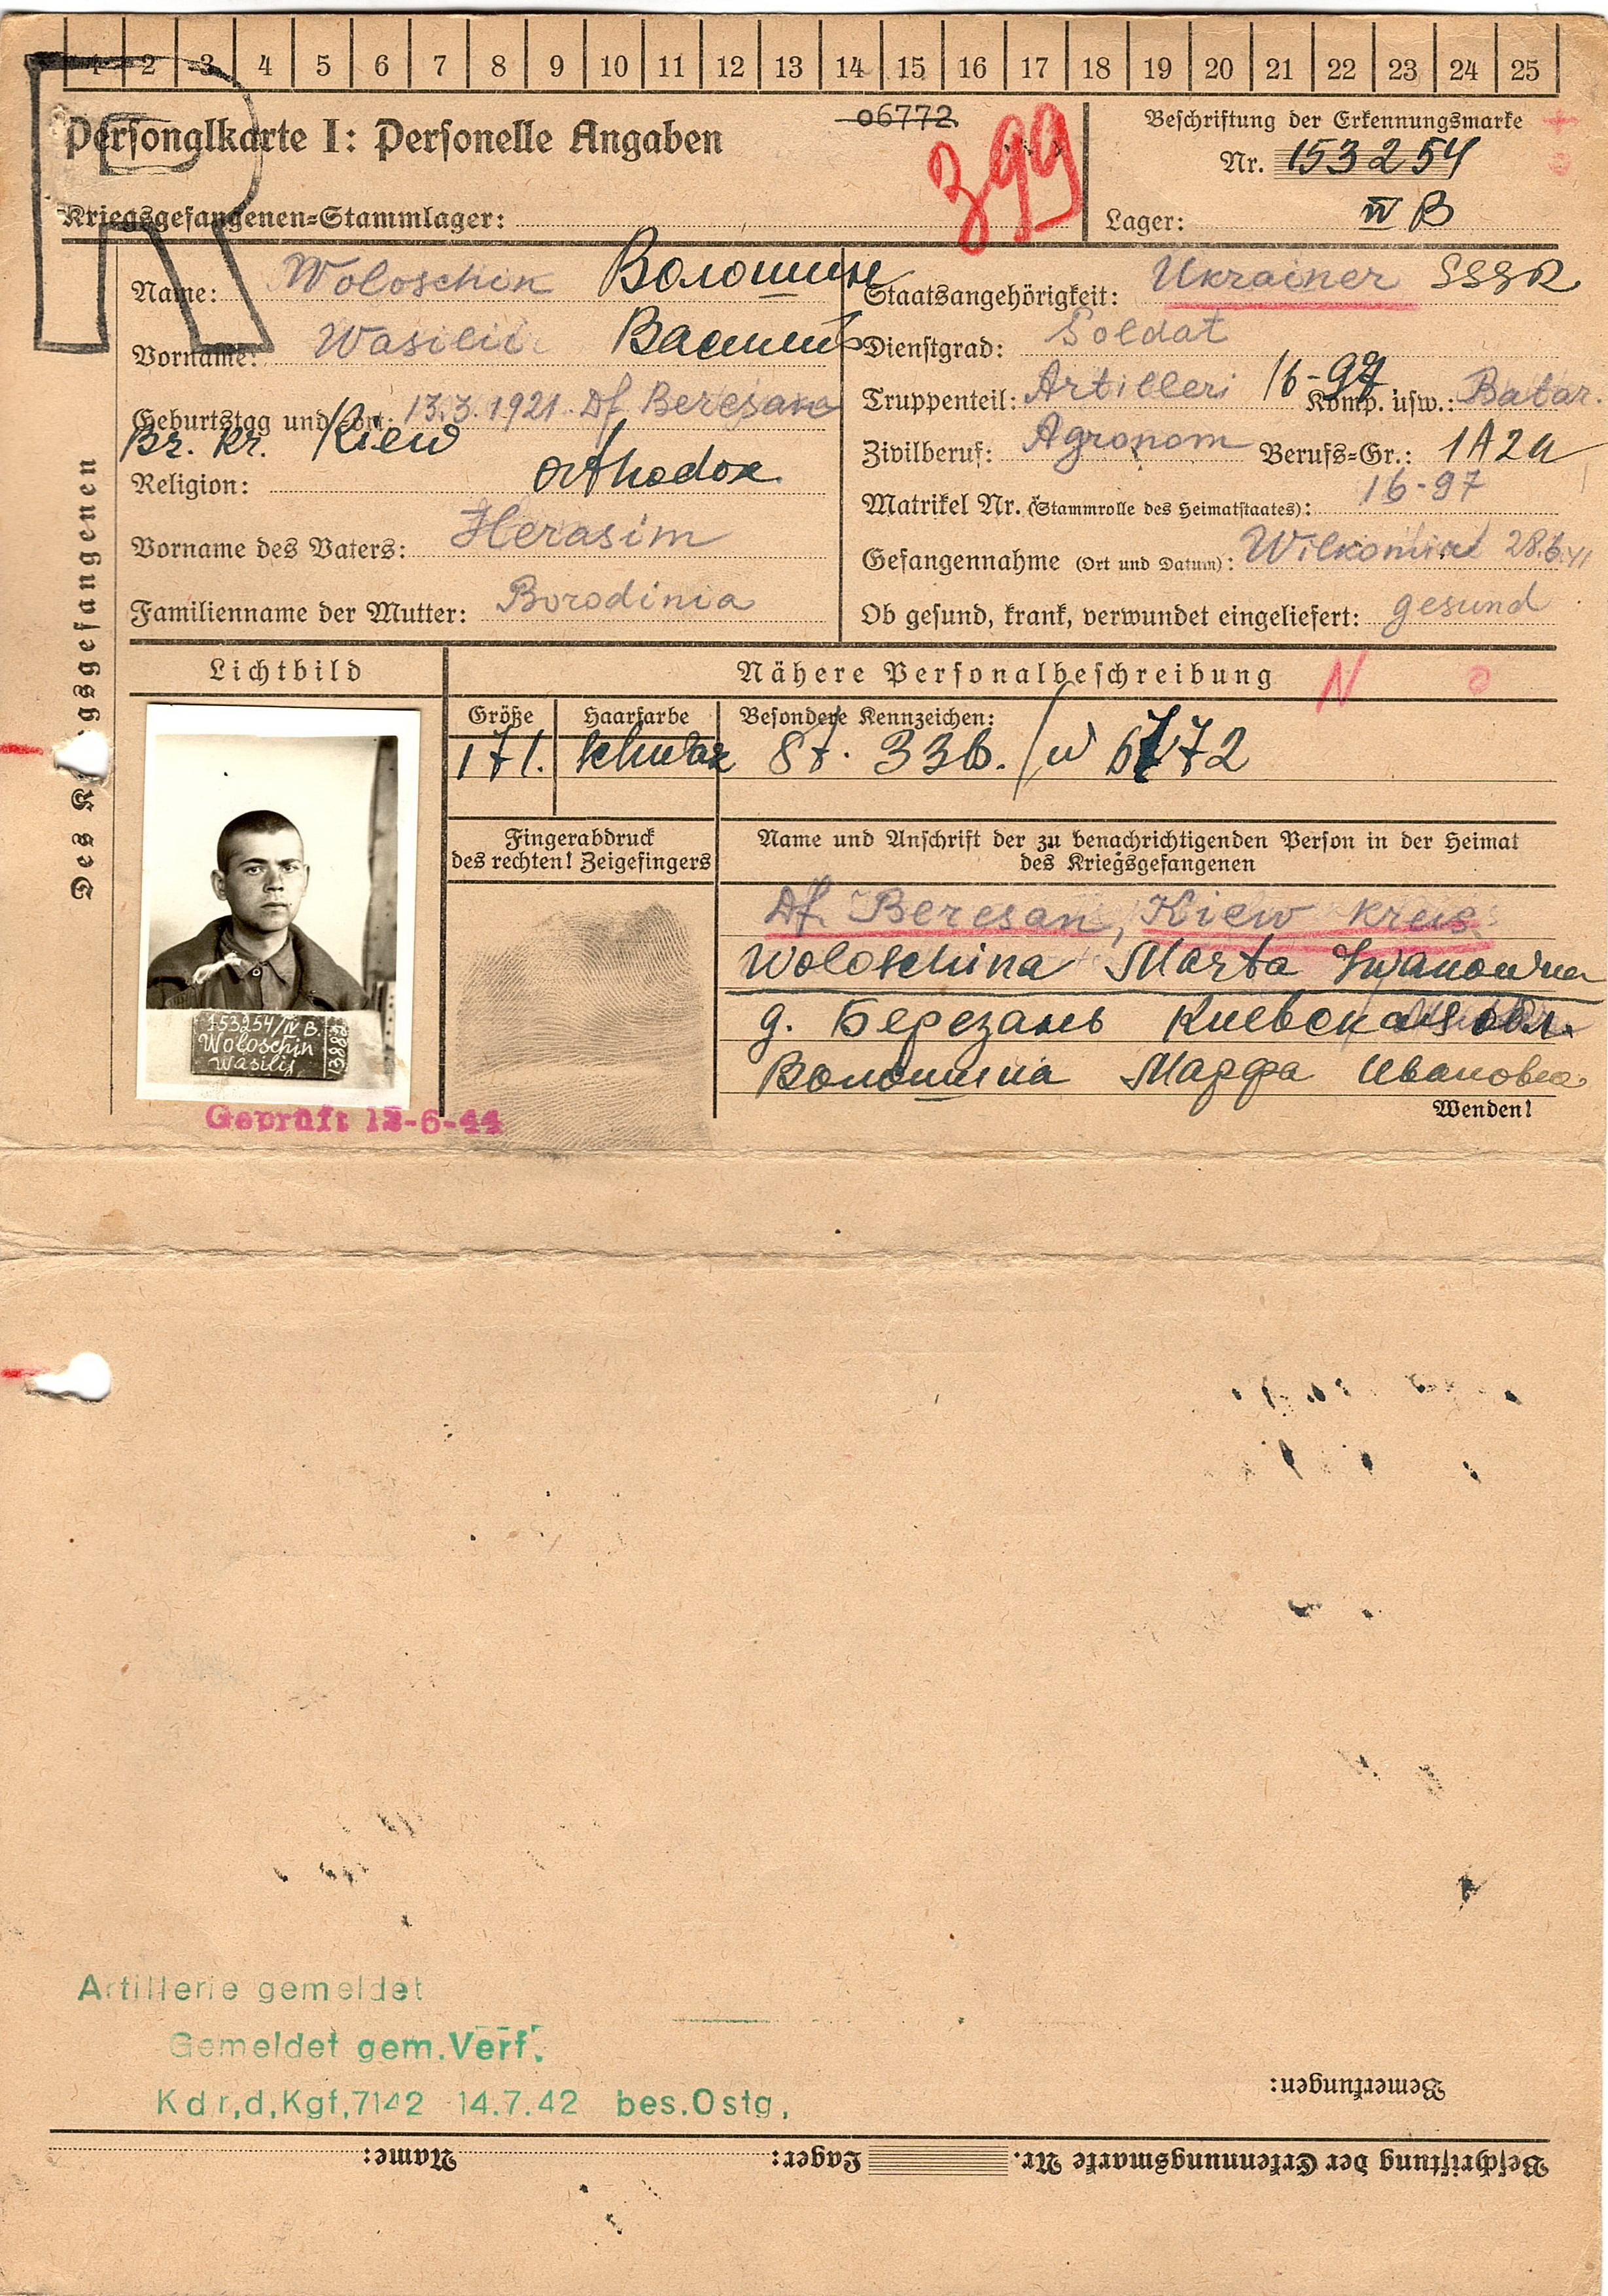 1 2 3 4 5 6 7 8 9 10 11 12 13 14 15 16 17 18 19 20 21 22 23 24 25
Personalkarte I: Personelle Angaben
06772
399
Kriegsgefangenen=Stammlager:
Beschriftung der Erkennungsmarke
Nr. 153254
Lager: IV B
Des Kriegsgefangenen
Name: Woloschin Волошин
Vorname: Wasilii Василий
Geburtstag und =Ort: 13.3.1921. Df Beresanj
Br. Kr. Kiew
Religion: orthodox
Vorname des Vaters: Herasim
Familienname der Mutter: Borodinia
Staatsangehörigkeit: Ukrainer SSSR
Dienstgrad: Soldat
Truppenteil: Artilleri 16-97 Komp. usw.: Batar.
Zivilberuf: Agronom Berufs=Gr.: 1A2a
Matrikel Nr. (Stammrolle des Heimatstaates): 16-97
Gefangennahme (Ort und Datum): Wilkomird 28.6.41
Ob gesund, krank, verwundet eingeliefert: gesund
Lichtbild
Nähere Personalbeschreibung N
Größe
171.
Haarfarbe
schwarz
Besondere Kennzeichen:
St. 336. / w 6772
Fingerabdruck
des rechten! Zeigefingers
Name und Anschrift der zu benachrichtigenden Person in der Heimat
des Kriegsgefangenen
Df. Beresan, Kiew kreis
Woloschina Marta Iwanowna
д. Березань Киевская обл.
Волошина Марфа Ивановна
Wenden!
153254/IV B.
Woloschin
Wasilij
Geprüft 12-6-44
Artillerie gemeldet
Gemeldet gem. Verf.
Kdr,d,Kgf,7142 14.7.42 bes.Ostg,
Bemerkungen:
Beschriftung der Erkennungsmarke Nr. Lager: Name: